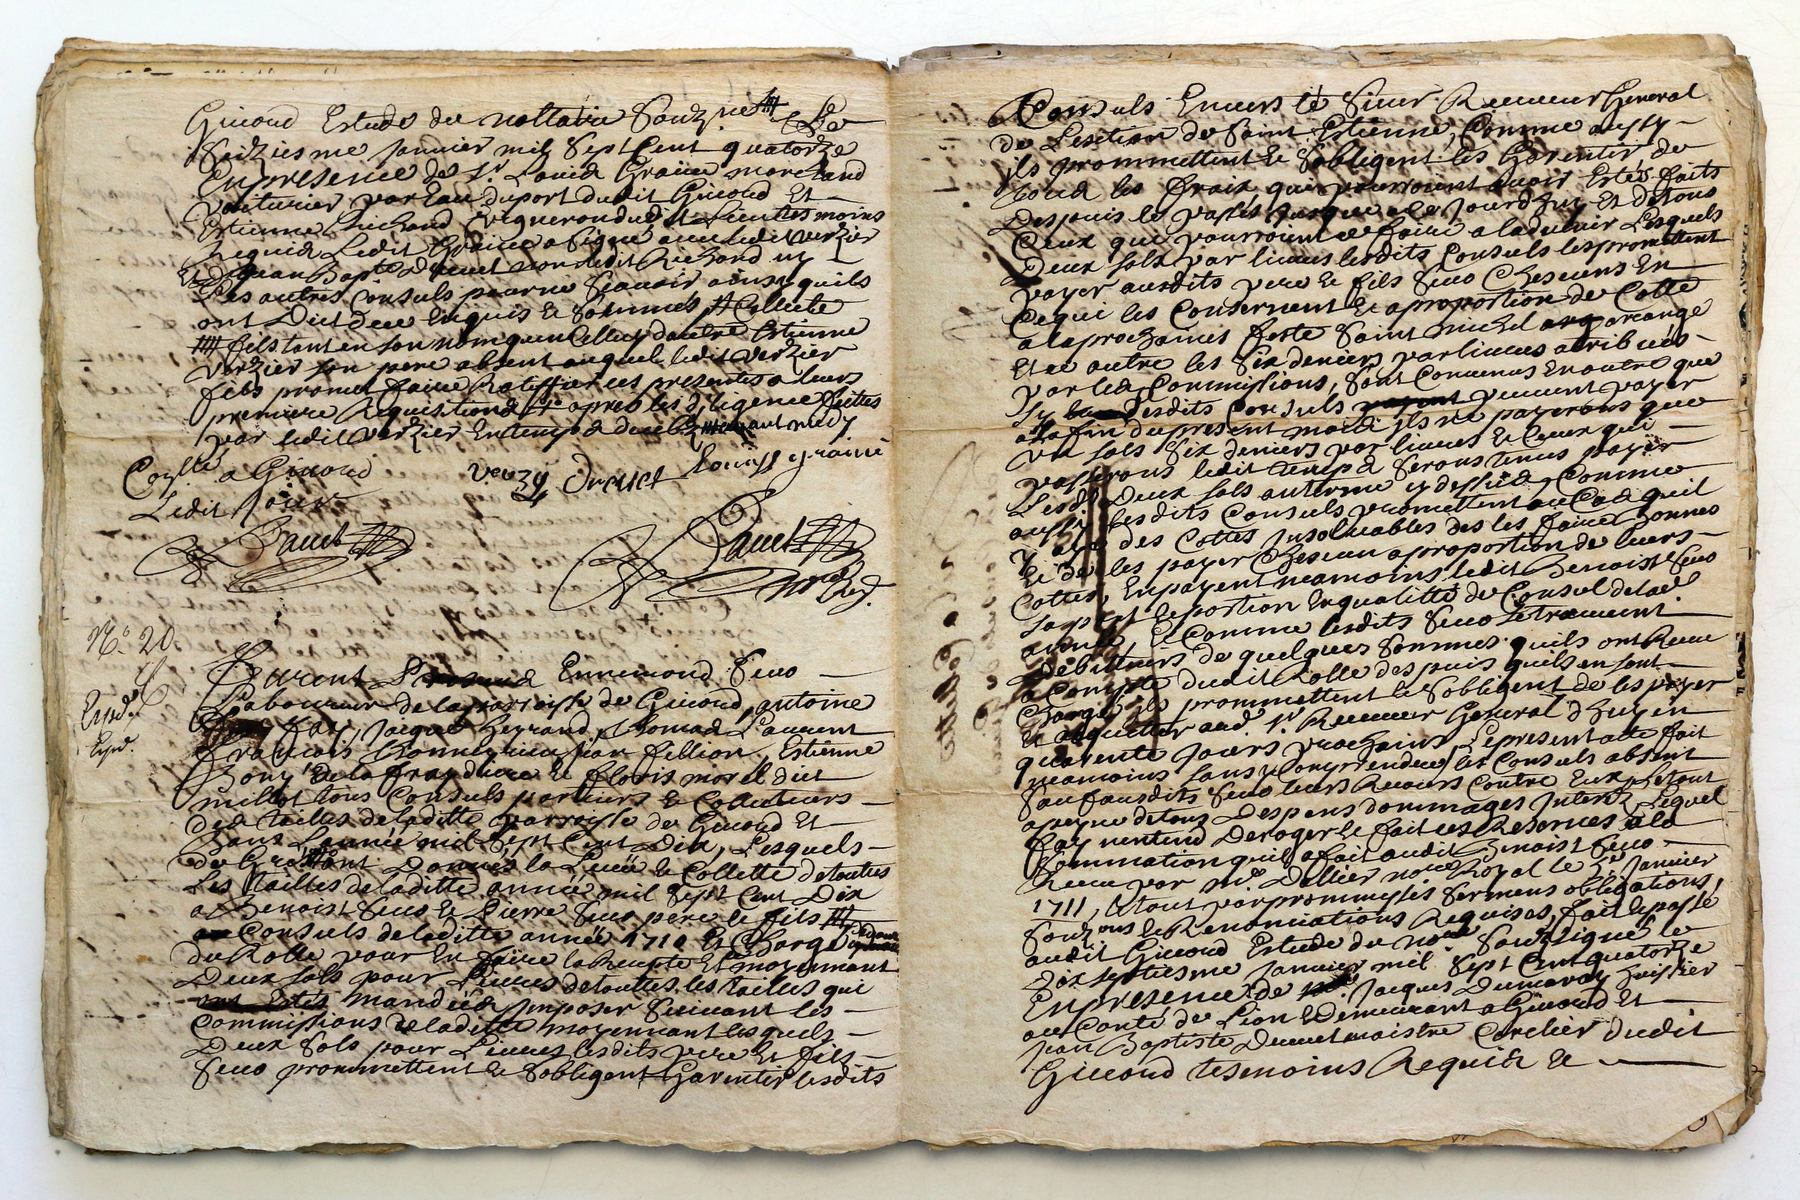 Givord Estude du nottaire Souz.né Le
Seiziesme Janvier mil Sept Cent quatorze
En presence de Sr. Louis Graine marchand
voiturier par Eau du port dudit Givord Et
Estienne Richard Vigneron dudit Lieu tesmoins
Requis Ledit Graine a Signé avec ledit verzier
Et Jean Bapte Drevet non ledit Richard ny
les autres Consuls pour ne Scavoir ainsy quils
ont Dict de ce Enquis Et Sommés Collecte
fils tant en son nom que Celluy dautre Estienne
verzier son pere absent auquel ledit verzier
fils promet faire Ratiffier ces presentes a leurs
premiere Requisitions apres les diligences faittes
par ledit verzier En temps deub avant midy
Conllé a Givord
Ledit Jour
Drevet Louis graine
N.o 20
Expd.
Expd.
Furent Ennemond Seuo
Laboureur de la parroisse de Givord, antoine
Fay, Jacque Peyrard, Thomas Laurent
francois Jean fillion, Estienne
Bony de la fraydiere Et floris morel dict
millot tous Consuls parciers Et Collecteurs
des tailles de laditte parroisse de Givord Et
dans Lannée mil Sept Cent Dix, Lesquels
de Gré ont Donnés la Levée Et Collette de touttes
Les Tailles de laditte année mil Sept Cent Dix
a Benoist Seuo Et Pierre Seuo pere Et fils
Consuls de laditte année 1710 Et Chargé
du Rolle pour En faire la Recepte Et moyennant
Deux Sols pour Livres de touttes les tailles qui
mandées Imposer Suivant les
Commissions de laditte moyennant lesquels
Deux Sols pour Livres lesdits pere Et fils
Seuo promettent Et Sobligent Garentir lesdits
Consuls Envers le Sieur Receveur General
de Lesection de Saint Estienne, Comme aussy
ils prommettent Et Sobligent les Garentir de
tous les fraix qui pourroient avoir Estés faits
Despuis le passé Jusques a ce Jourdhuy Et de tous
Ceux qui pourroient se faire a ladvenir Lesquels
Deux Sols par livres lesdits Consuls les promettent
payer ausdits pere Et fils Seuo Chescuns En
Ce qui les Consernent Et a proportion de Cotte
a la prochaine feste Saint michel arcange
Et ce outre les Six deniers par livres atribués
par lesd. Commissions, Sont Convenus En outre que
Sy lesdits Consuls veulent payer
a la fin du present mois ils ne payerons que
un Sols Six deniers par livres Et Ceux qui
passerons ledit temps Serons tenus payer
Lesd. Deux Sols au terme cy dessus, Comme
aussi lesdits Consuls promettent au Cas quil
y aye des Cottes Insolvables de les faire bonnes
Et de les payer Chescun a proportion de leurs
Cottes, En payent neamoins ledit Benoist Seuo
Sa part Et portion En qualitté de Consul de lad.
année, Et Comme lesdits Seuo Se treuvent
debitteurs de quelques Sommes quils ont Receu
a Compte dudit Rolle despuis quils en Sont
Chargés ils prommettent Et Sobligent de les payer
Et aquitter aud. Sr. Receveur General dhuy en
quarente Jours prochains, Le present acte fait
neamoins Sans y Comprendre les Consuls absent
Sauf ausdits Seuo leurs Recours Contre Eux, Le tout
a peyne de tous Despens dommages Interets, Lequel
fay nentend Deroger Et fait Ces Reserves a la
Sommation quil a fait audit Benoist Seuo
Receu par me. Dellier nore Royal le Janvier
1711, Le tout par prommesses Sermens obligations,
Souz.ons Et Renonciations Requises, fait Et passé
audit Givord Estude du nore Souzsigné le
dix Septiesme Janvier mil Sept Cent quatorze
En presence de Jacques Dumaray huissier
au Conté de Lion Et Demeurant a Givord Et
Jean Baptiste Drevet maistre Cordier dudit
Givord tesmoins Requis Et